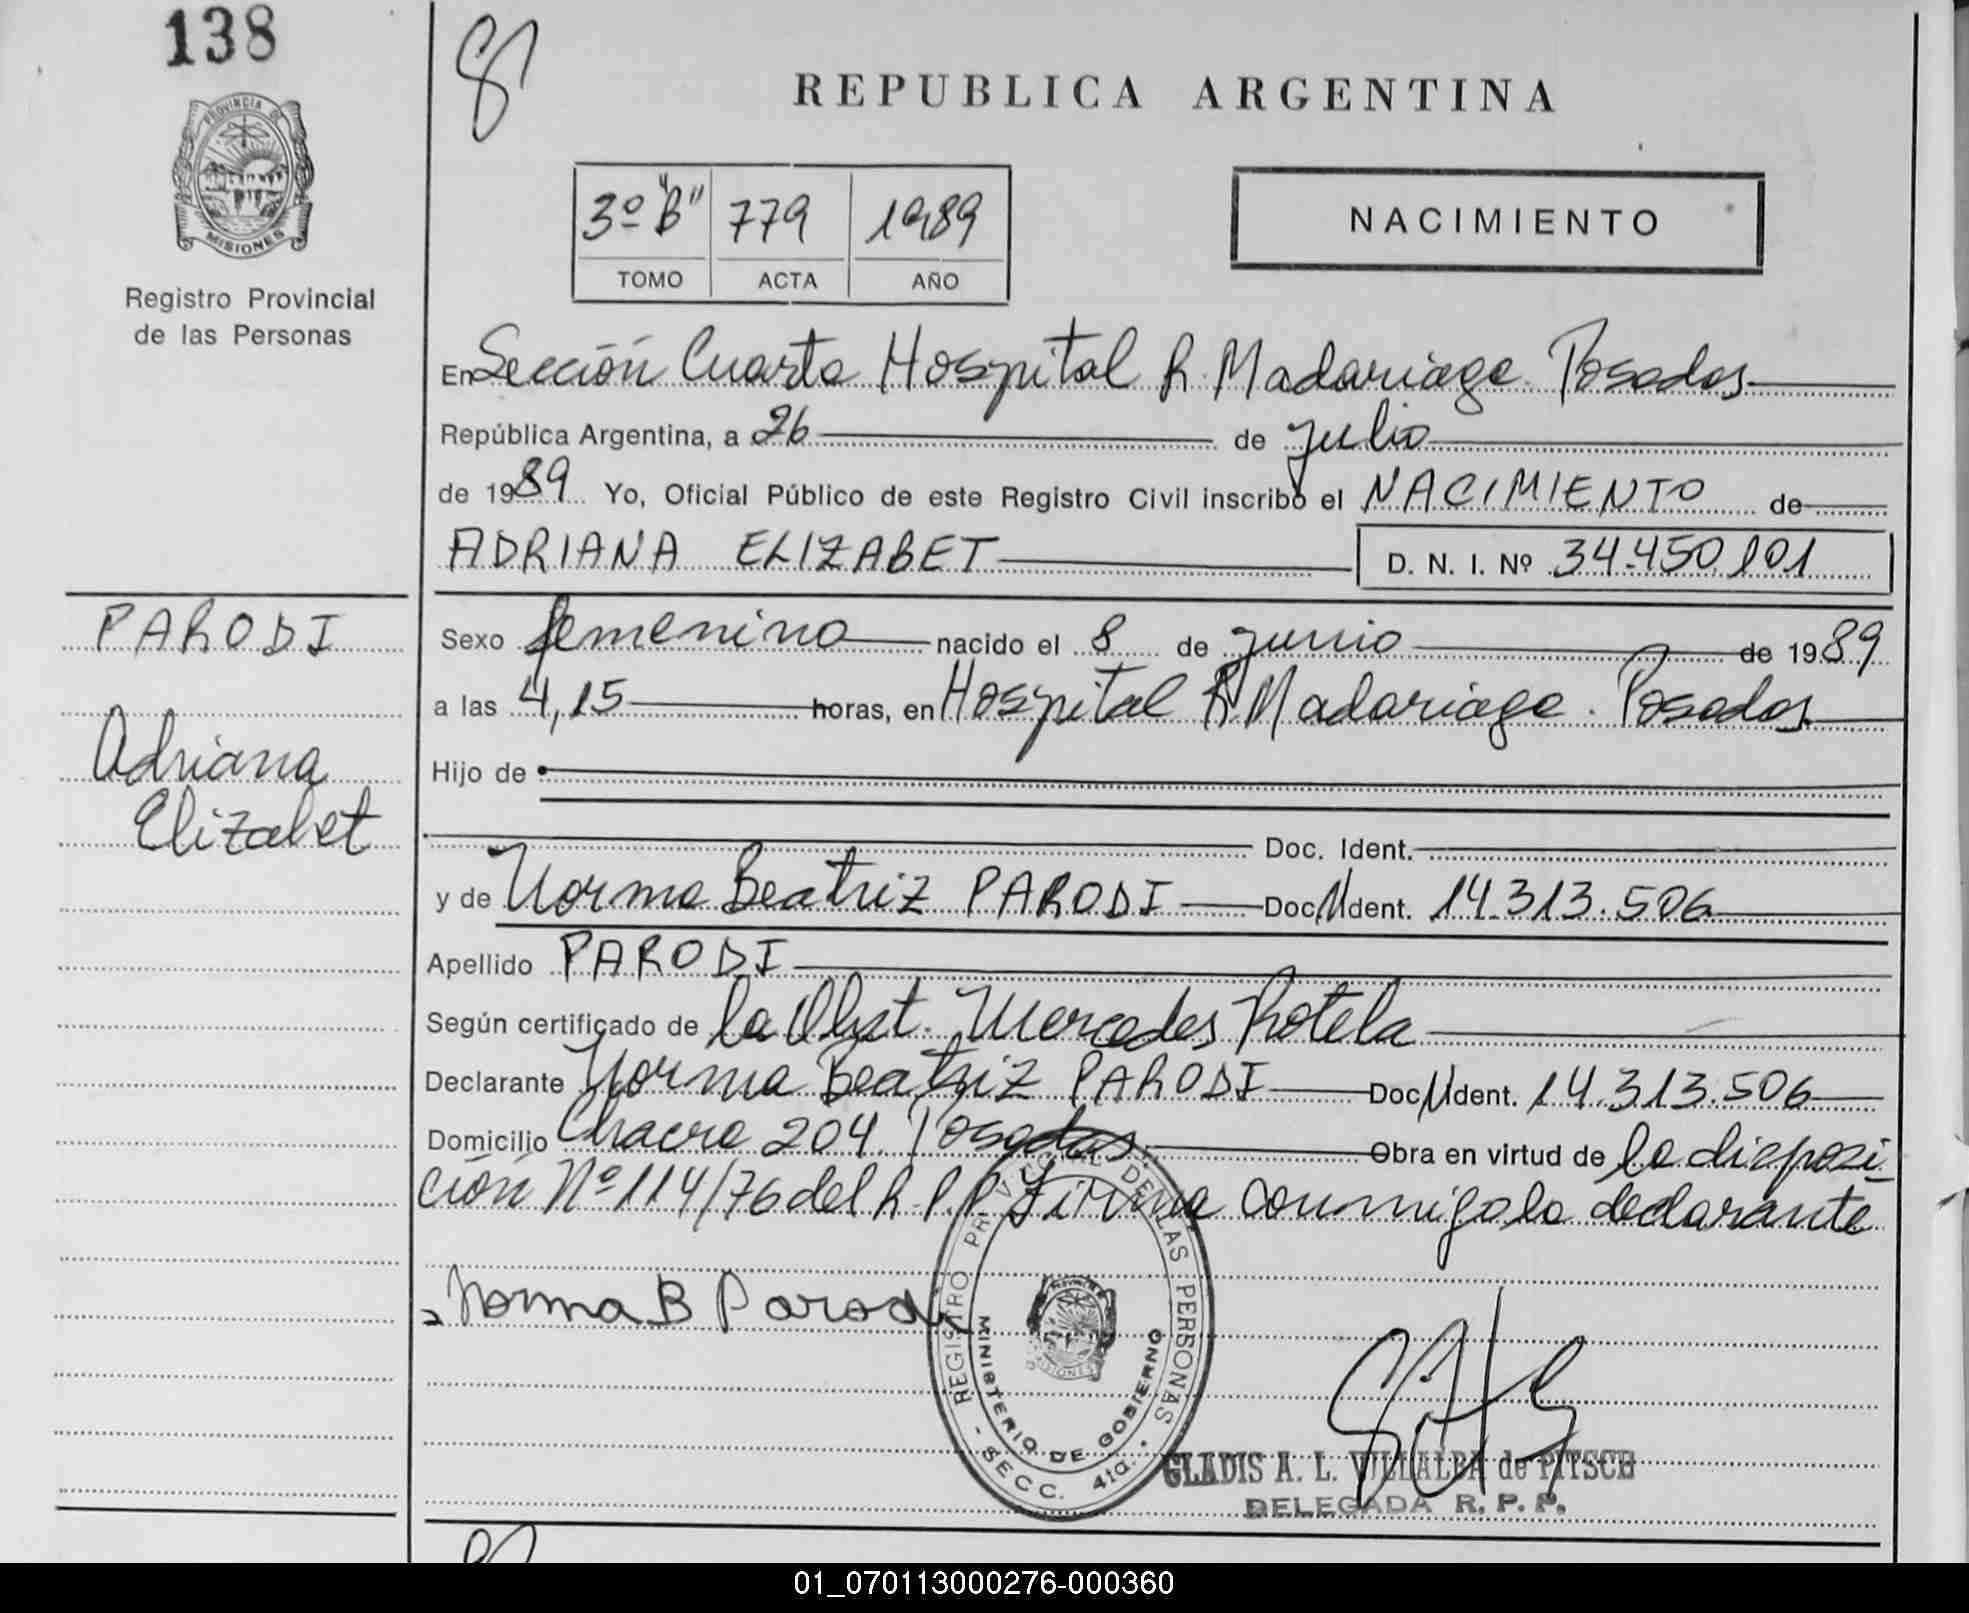 138
REPUBLICA ARGENTINA
PROVINCIA DE
MISIONES
Registro Provincial
de las Personas
3º "B" 779 1989
TOMO ACTA AÑO
NACIMIENTO
En Sección Cuarta Hospital R. Madariaga. Posadas
República Argentina, a 26 de julio
de 1989 Yo, Oficial Público de este Registro Civil inscribo el NACIMIENTO de
ADRIANA ELIZABET D. N. I. Nº 34.450.101
PARODI
Adriana
Elizabet
Sexo femenino nacido el 8 de junio de 1989
a las 4,15 horas, en Hospital R. Madariaga. Posadas
Hijo de
Doc. Ident.
y de Norma Beatriz PARODI Doc. Ident. 14.313.506
Apellido PARODI
Según certificado de la Obst. Mercedes Rotela
Declarante Norma Beatriz PARODI Doc. Ident. 14.313.506
Domicilio Chacra 204. Posadas Obra en virtud de la disposi
ción Nº 114/76 del R.P.P. Firma conmigo la declarante
Norma B Parodi
REGISTRO PROVINCIAL DE LAS PERSONAS
MINISTERIO DE GOBIERNO
- SECC. 4ta. -
GLADIS A. L. VILLALBA de PITSCH
DELEGADA R. P. P.
01_070113000276-000360